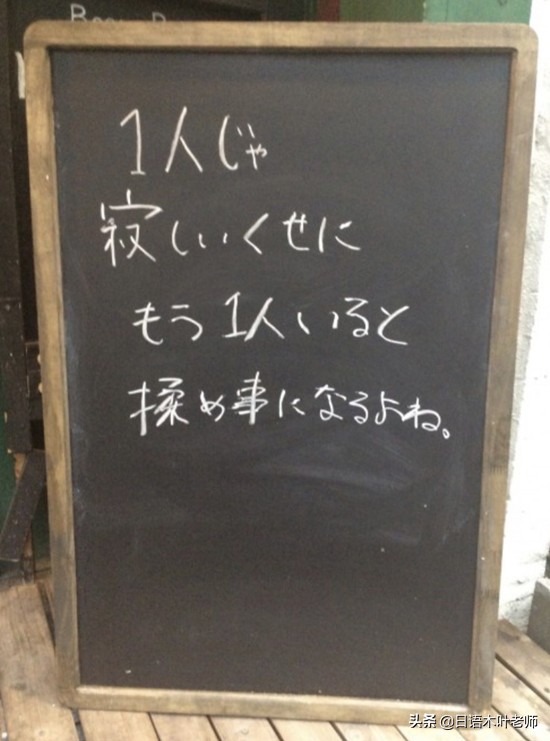 1人じゃ
寂しいくせに
もう1人いると
揉め事になるよね。
头条 @日语木叶老师